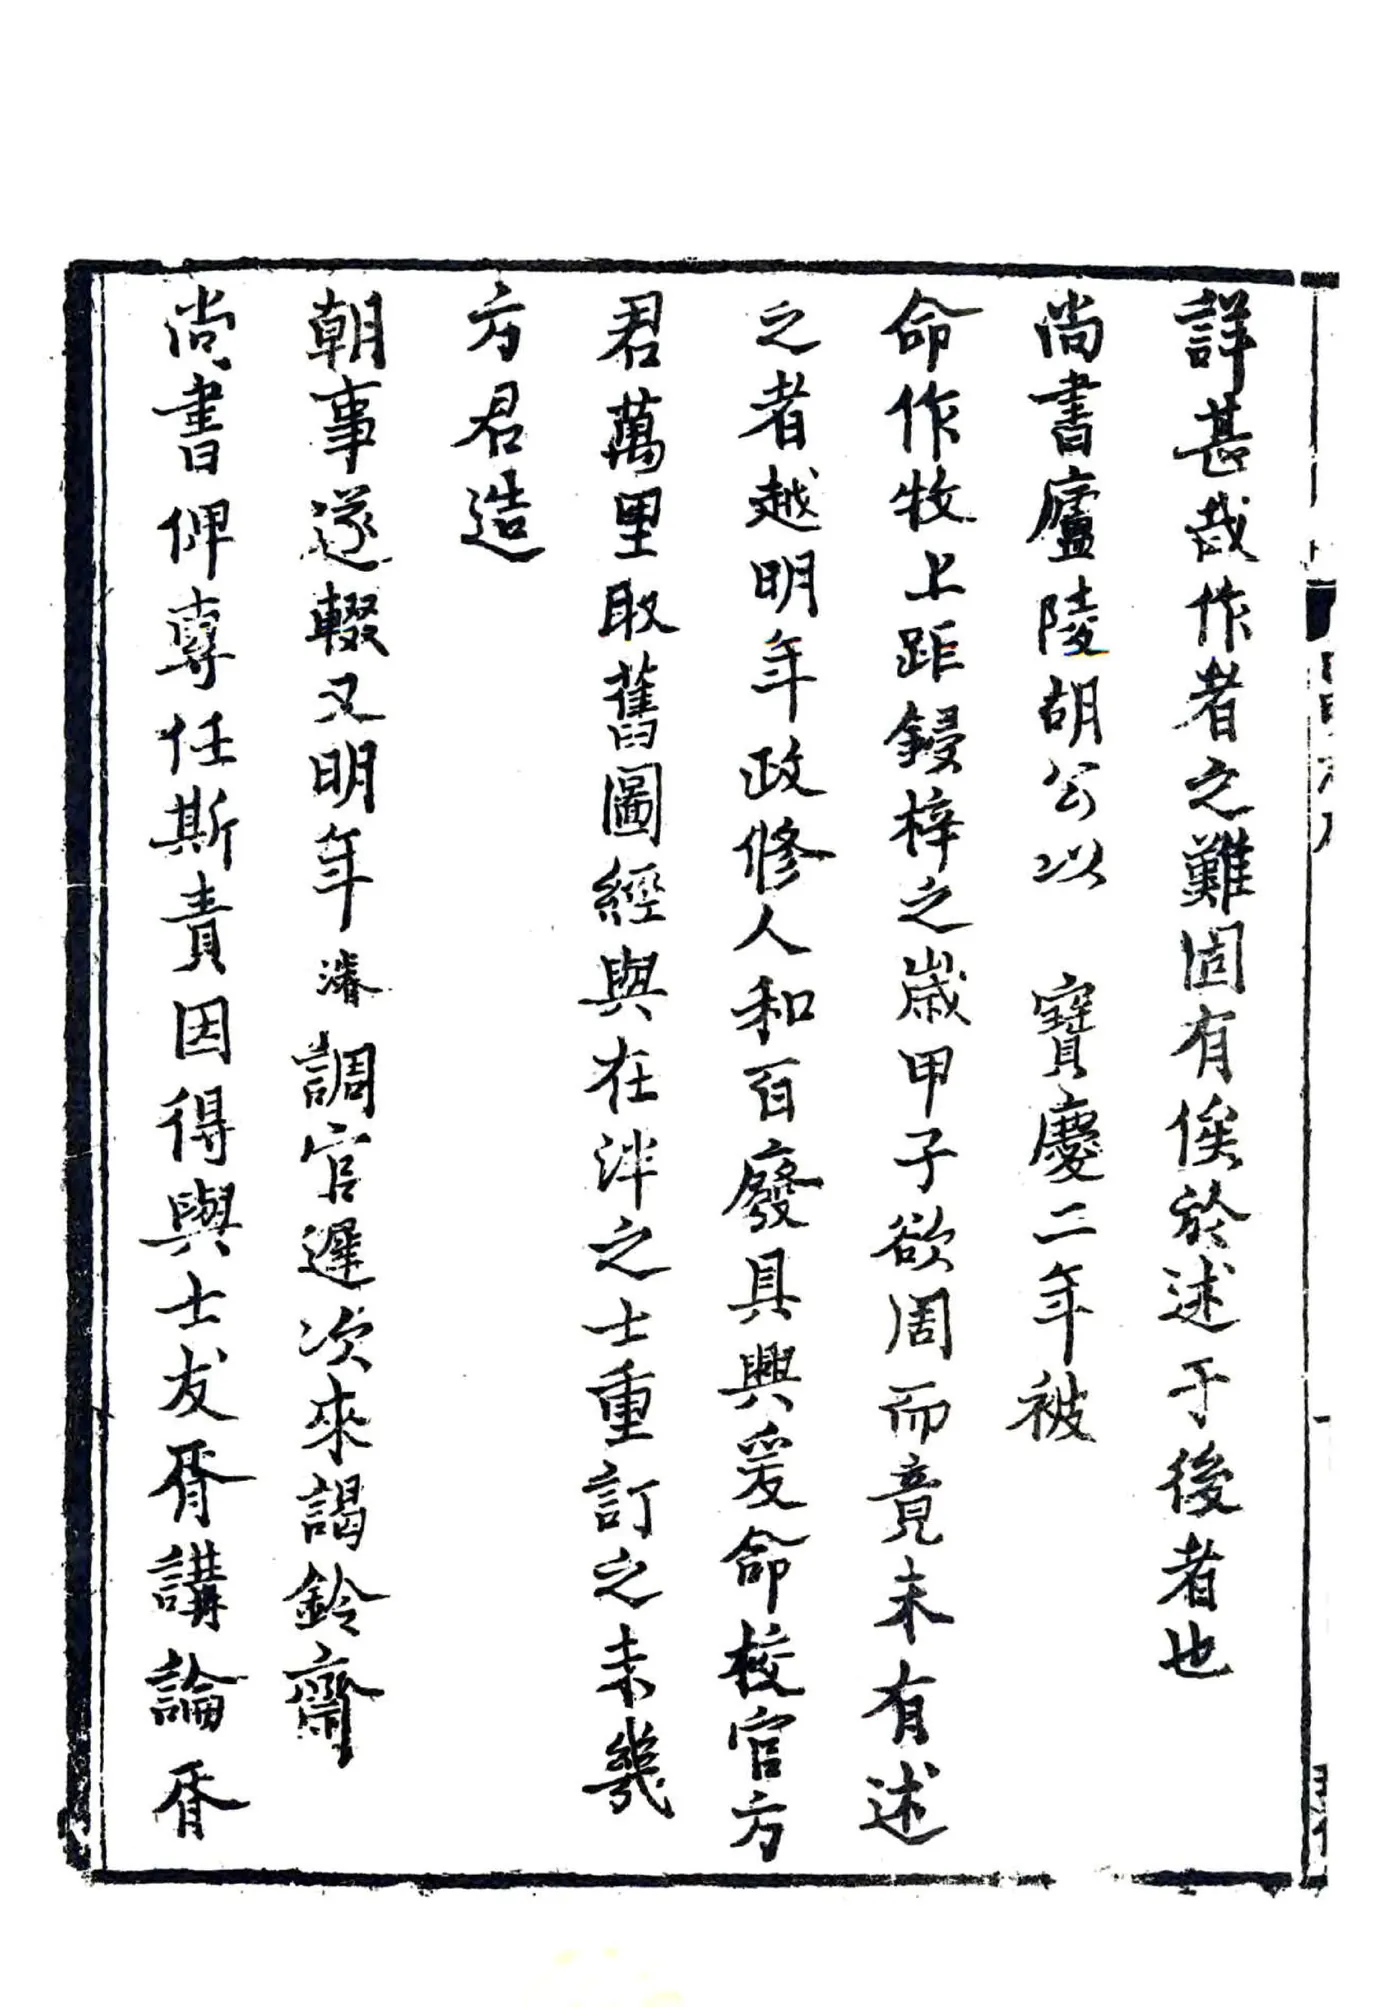 詳甚哉作者之難固有俟於述于後者也
尚書廬陵胡公以　寶慶二年被
命作牧上距鋟梓之歲甲子欲周而竟未有述
之者越明年政修人和百廢具興爰命校官方
君萬里取舊圖經與在泮之士重訂之未幾
方君造
朝事遂輟又明年濬調官遲次來謁鈴齋
尚書俾專任斯責因得與士友胥講論胥